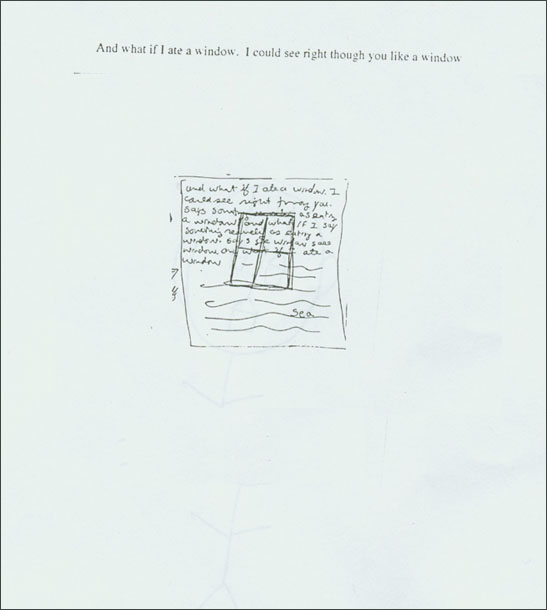 And what if I ate a window.  I could see right though you like a window
and what if I ate a window. I
could see right you.
Says as eating
a window and what if I say
something as eating a
window. Says
window. ate a
window
sea